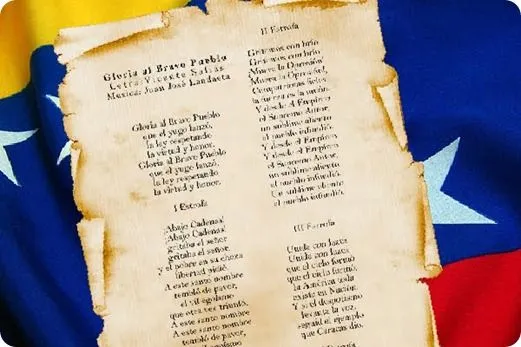 Gloria al Bravo Pueblo
Letra: Vicente Salias
Musica: Juan José Landaeta
Gloria al Bravo Pueblo
que el yugo lanzó,
la ley respetando
la virtud y honor.
Gloria al Bravo Pueblo
que el yugo lanzó,
la ley respetando
la virtud y honor.
I Estrofa
¡Abajo Cadenas!
¡Abajo Cadenas!
gritaba el señor
gritaba el señor
y el pobre en su choza
libertad pidió.
A este santo nombre
tembló de pavor,
el vil egoísmo
que otra vez triunfó.
A este santo nombre
A este santo nombre
tembló de pavor,
II Estrofa
Gritemos con brío
Gritemos con brío
¡Muera la Opresión!
¡Muera la Opresión!
Compatriotas fieles
la fuerza es la unión.
Y desde el Empíreo
el Supremo Autor,
un sublime aliento
al pueblo infundió.
Y desde el Empíreo
el Supremo Autor,
un sublime aliento
al pueblo infundió.
Un sublime aliento
al pueblo infundió.
III Estrofa
Unida con lazos
Unida con lazos
que el cielo formó
que el cielo formó
la América toda
existe en Nación
Y si el despotismo
levanta la voz,
seguid el ejemplo
que Caracas dio.